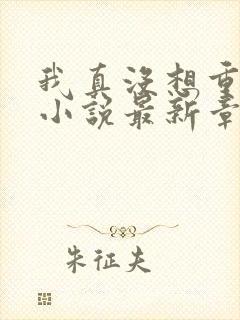 我真没想重
小说最新章
朱征夫